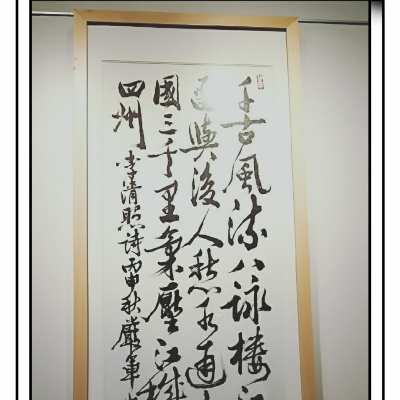 千古風流八詠樓江
留與後人愁水通
國三千里氣壓江城
四州 李清照詩丙申秋嚴軍